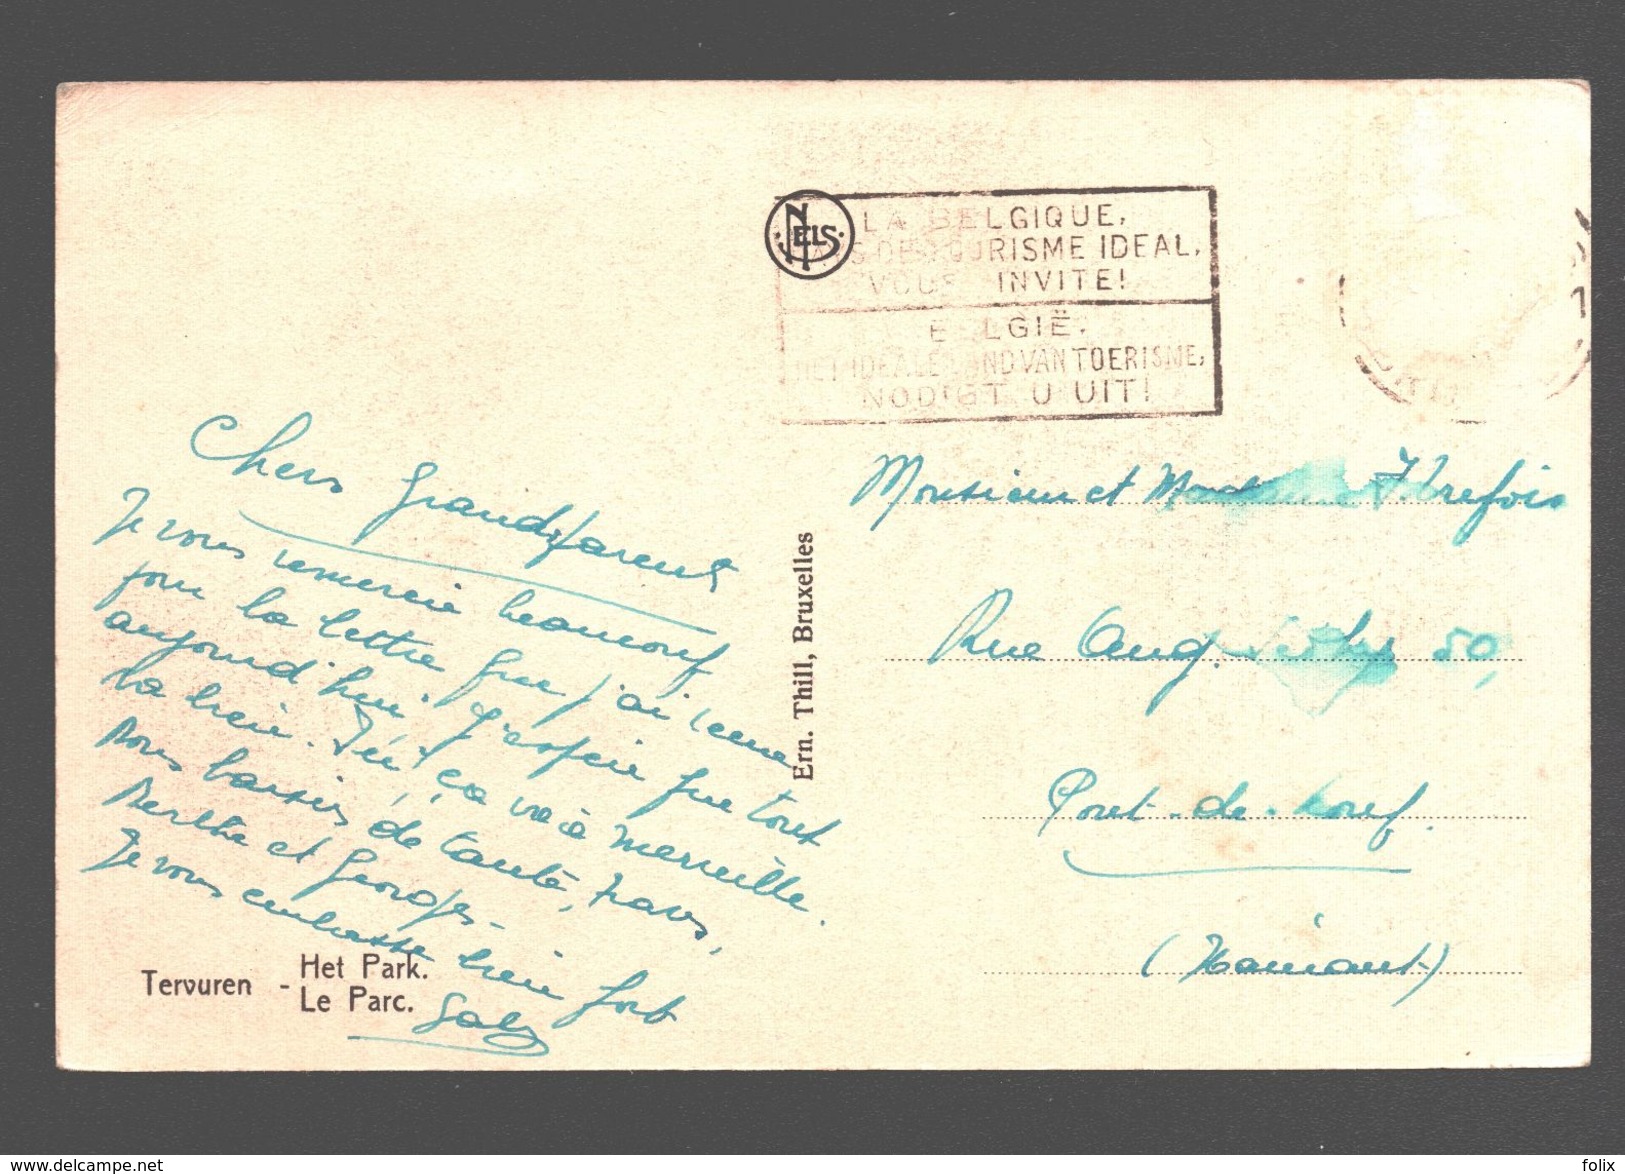 NELS
LA BELGIQUE,
PAYS DE TOURISME IDEAL,
VOUS INVITE!
BELGIË,
HET IDEALE LAND VAN TOERISME,
NODIGT U UIT!
Chers Grands parents
Je vous remercie beaucoup
pour la lettre que j'ai reçue
aujourd'hui. J'espère que tout
va bien. Ici, ça va à merveille.
Bons baisers de tante,
Berthe et Georges.
Je vous embrasse bien fort
Gaby
Tervuren - Het Park.
Le Parc.
Ern. Thill, Bruxelles
Monsieur et Madame
Rue Aug. 50,
Pont-de-Loup.
(Hainaut)
folix
Delcampe.net